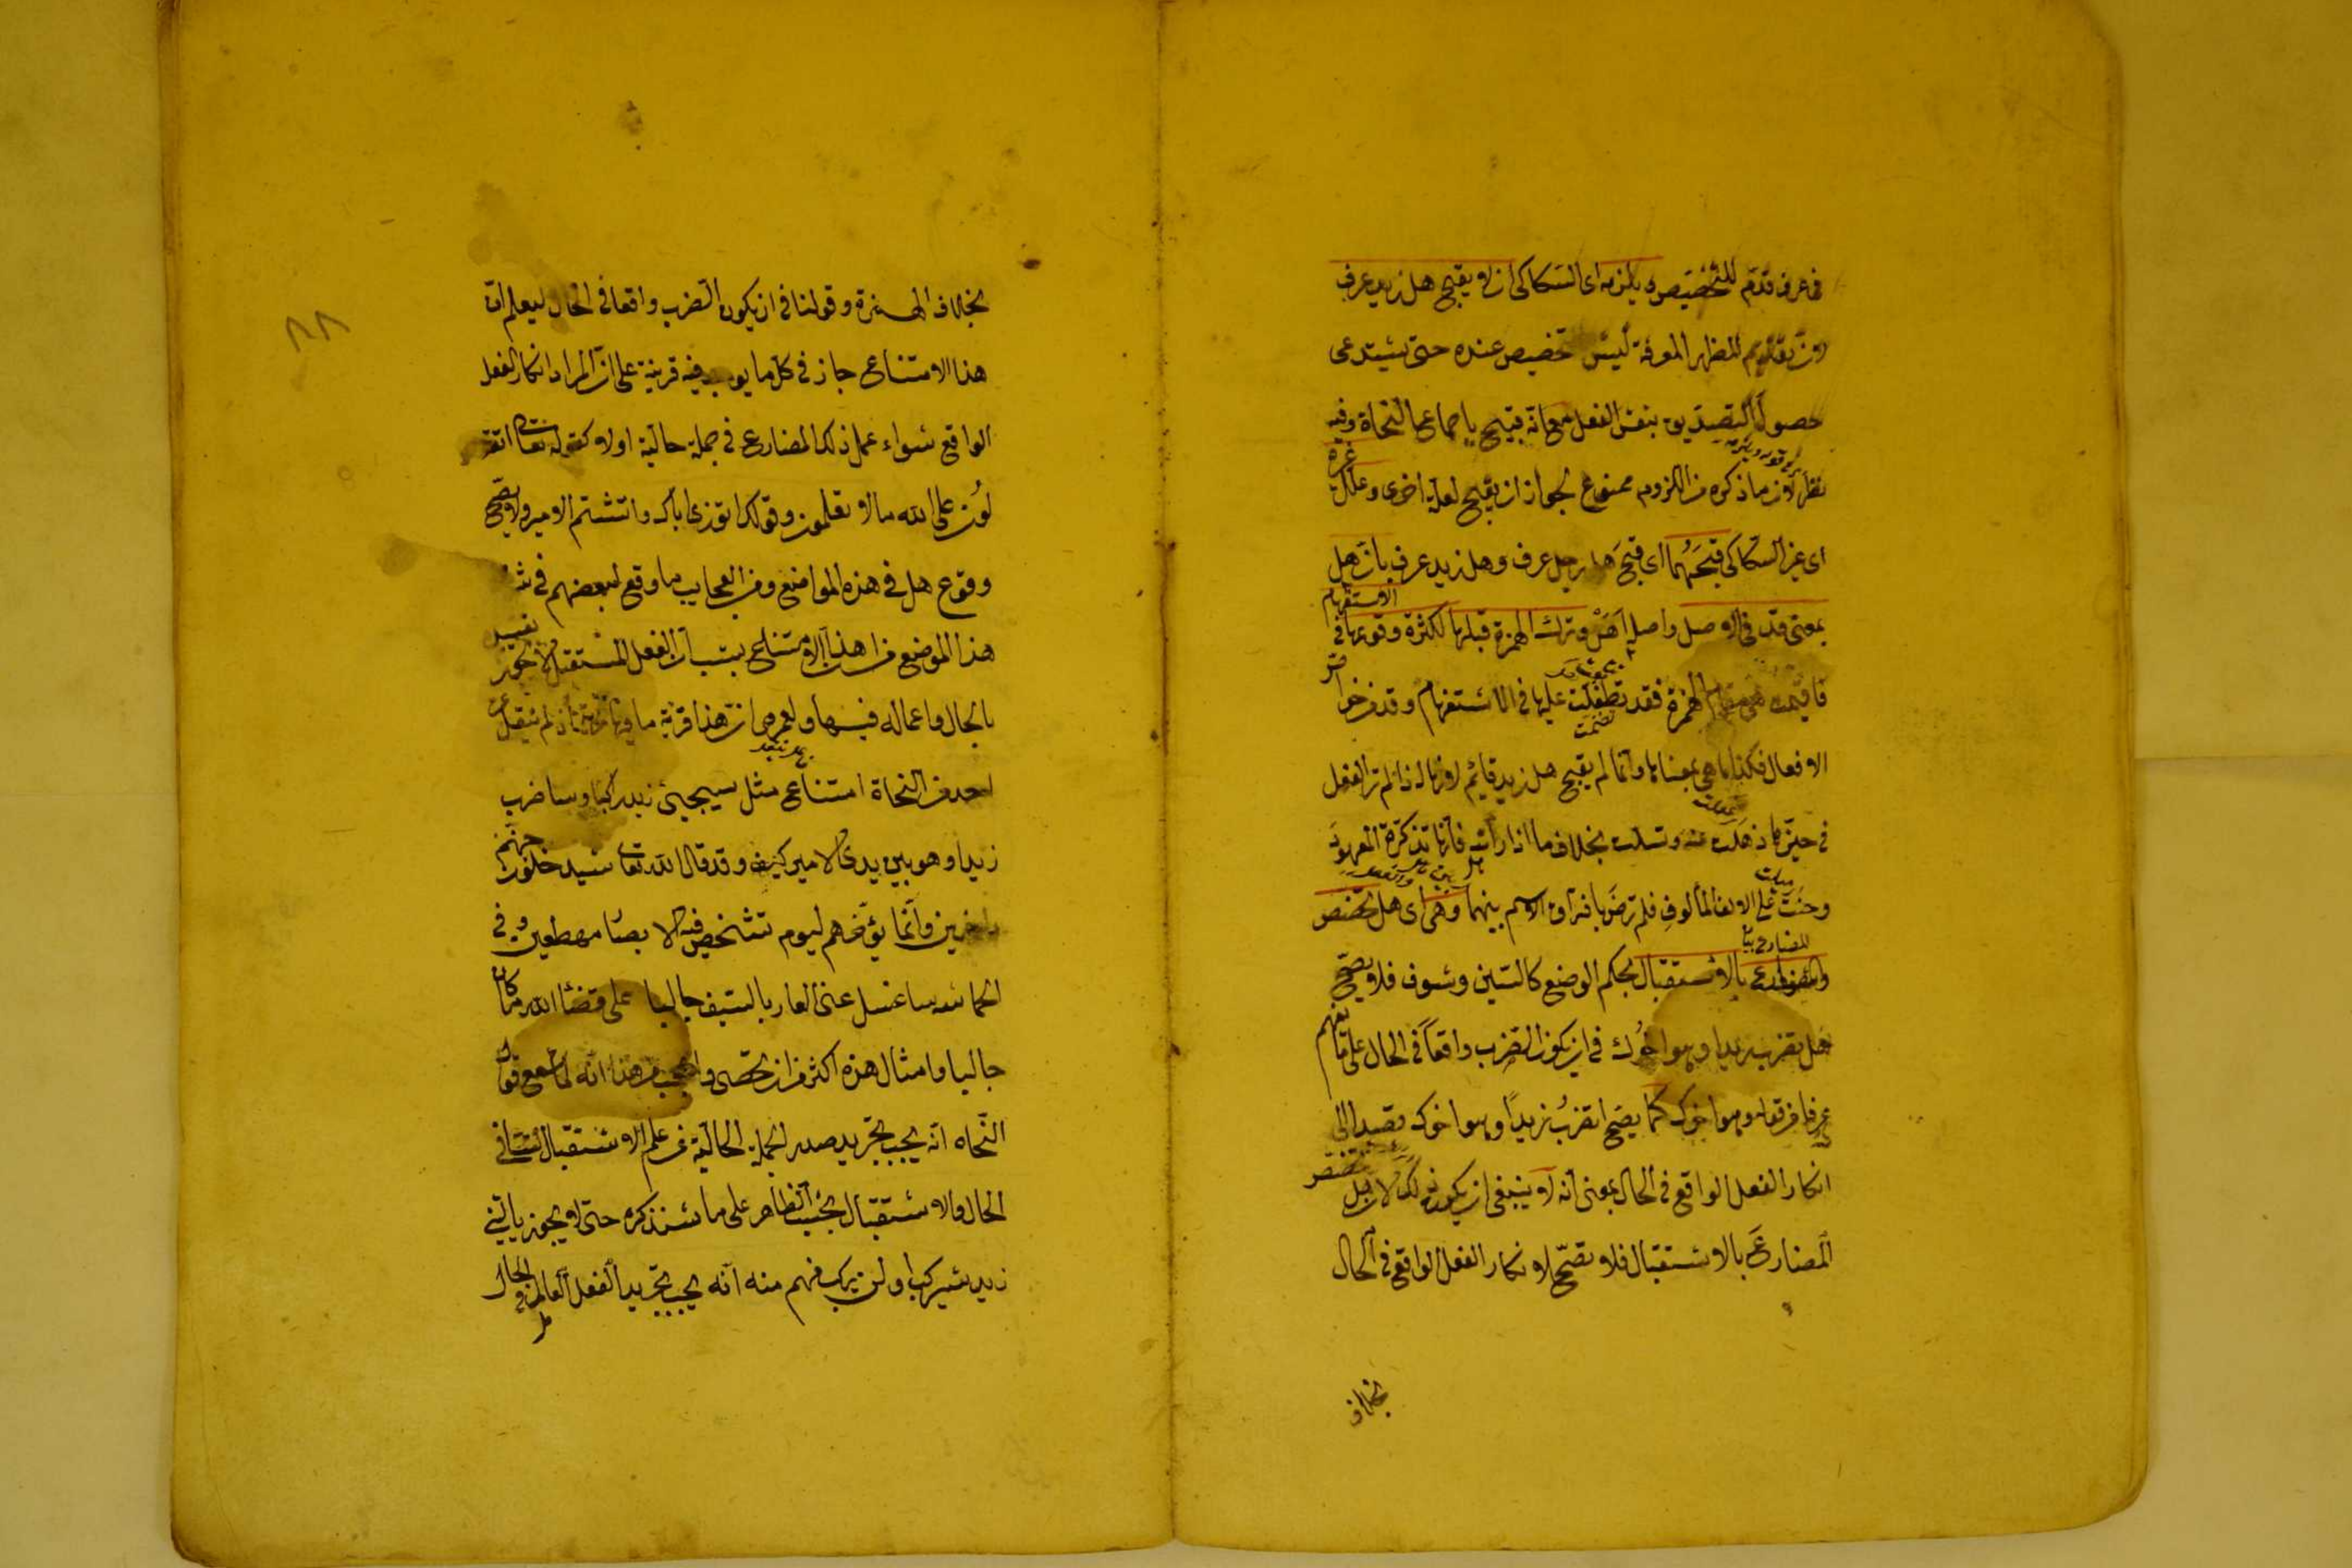 فى عرف قدم للتخصيص ويلزمه اى السكاكى ان لا يقبح هل زيد عرف
لان تقديم المظهر المعرفة ليس للتخصيص عنده حتى يستدعى
حصول التصديق بنفس الفعل مع انه قبيح باجماع النحاة وفيه
نظر لان ما ذكره من اللزوم ممنوع لجواز ان يقبح لعلة اخرى وعلل غيره
اى غير السكاكى قبحهما اى قبح هل رجل عرف وهل زيد عرف بان هل
بمعنى قد فى الاصل واصله اهل وترك الهمزة قبلها لكثرة وقوعها فى الاستفهام
فاقيمت هى مقام الهمزة فقد تطفلت عليها فى الاستفهام وقد من خواص
الافعال فكذا ما هى بمعناها وانما لم يقبح هل زيد قائم لانها اذا لم تر الفعل
فى حيزها ذهلت عنه وتسلت بخلاف ما اذا رأته فانها تذكرت العهود
وحنت على الالف المألوف فلم ترض بافتراق الاسم بينهما وهى اى هل تخصص
المضارع بالاستقبال بحكم الوضع كالسين وسوف فلا يصح
هل تضرب زيدا وهو اخوك فى ان يكون الضرب واقعا فى الحال على ما يفهم
عرفا من قوله وهو اخوك كما يصح اتضرب زيدا وهو اخوك قصدا الى
انكار الفعل الواقع فى الحال بمعنى انه لا ينبغى ان يكون ذلك لان هل تخصص
المضارع بالاستقبال فلا تصح لانكار الفعل الواقع فى الحال
بخلاف
٨٨
بخلاف الهمزة وقولنا فى ان يكون الضرب واقعا فى الحال ليعلم ان
هذا الامتناع جاز فى كل ما يوجد فيه قرينة على ان المراد انكار الفعل
الواقع سواء عمل ذلك المضارع فى جملة حالية اولا كقوله تعالى اتقو
لون على الله ما لا تعلمون وقولك اتوذى اباك واتشتم الامير ولا يصح
وقوع هل فى هذه المواضع ومن العجايب ما وقع لبعضهم فى شرح
هذا الموضع من ان هذا الامتناع بسبب ان الفعل المستقبل لا يجوز تقييده
بالحال واعماله فيها ولعمرى ان هذا فرية ما فيها مرية اذ لم ينقل عن
احد من النحاة امتناع مثل سيجيئ زيد راكبا وساضرب
زيدا وهو بين يدى الامير كيف وقد قال الله تعالى سيدخلون جهنم
داخرين وانما يؤخرهم ليوم تشخص فيه الابصار مهطعين وفى
الحماسة ساغسل عنى العار بالسيف جالبا على قضاء الله ما كان
جالبا وامثال هذه اكثر من ان تحصى واعجب من هذا انه لما سمع قول
النحاه انه يجب تجريد صدر الجملة الحالية عن علم الاستقبال لتنافى
الحال والاستقبال بحسب الظاهر على ما سنذكره حتى لا يجوز ياتينى
زيد سيركب او لن يركب فهم منه انه يجب تجريد الفعل العامل فى الحال